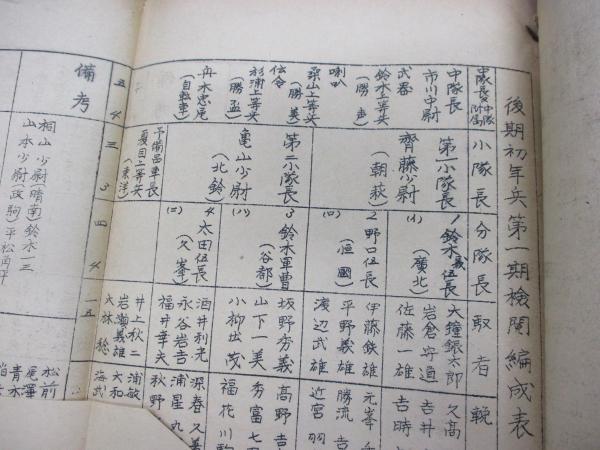 後期初年兵第一期検閲編成表
中隊長及中隊附属
小隊長
分隊長
馭者
輓
中隊長
市川中尉
武器
鈴木上等兵
(勝声)
喇叭
桑山上等兵
(勝美)
伝令
杉浦上等兵
(勝盃)
舟木忠尾
(自転車)
五
4
第一小隊長
齊藤少尉
(朝萩)
第二小隊長
亀山少尉
(北鈴)
予備馬車長
夏目上等兵
(東洋)
三
3
(イ)
1 鈴木義伍長
(廣北)
(ロ)
2 野口伍長
(恒國)
(ハ)
3 鈴木軍曹
(谷都)
(ニ)
4 太田伍長
(久峯)
四
4
大鐘銀太郎
岩倉守道
佐藤一雄
伊藤鉄雄
平野義雄
渡辺武雄
坂野房義
山下一美
小柳出茂
酒井利光
永谷岩吉
福井華夫
井上秋二
岩瀬義雄
大林稔
一五
久高
吉井
吉時
元峯
勝流
近宮
高野
秀富
福花
深春
浦星
秋野
浦敏
大和
海武
備考
桐山少尉(晴南)鈴木一三
山本少尉(政駒)平松角平
松前
尾澤
青木